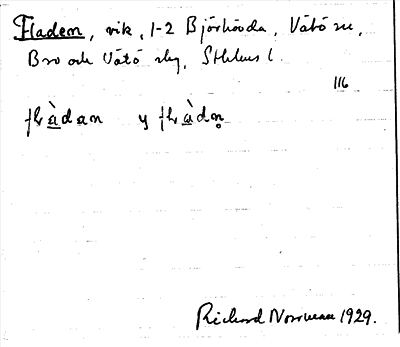 Fladen, vik, 1-2 Björkövda, Vätö sn,
Bro och Vätö slg, Sthlms l.
116
flàdan y flàdn̥
Richard Norrman 1929.